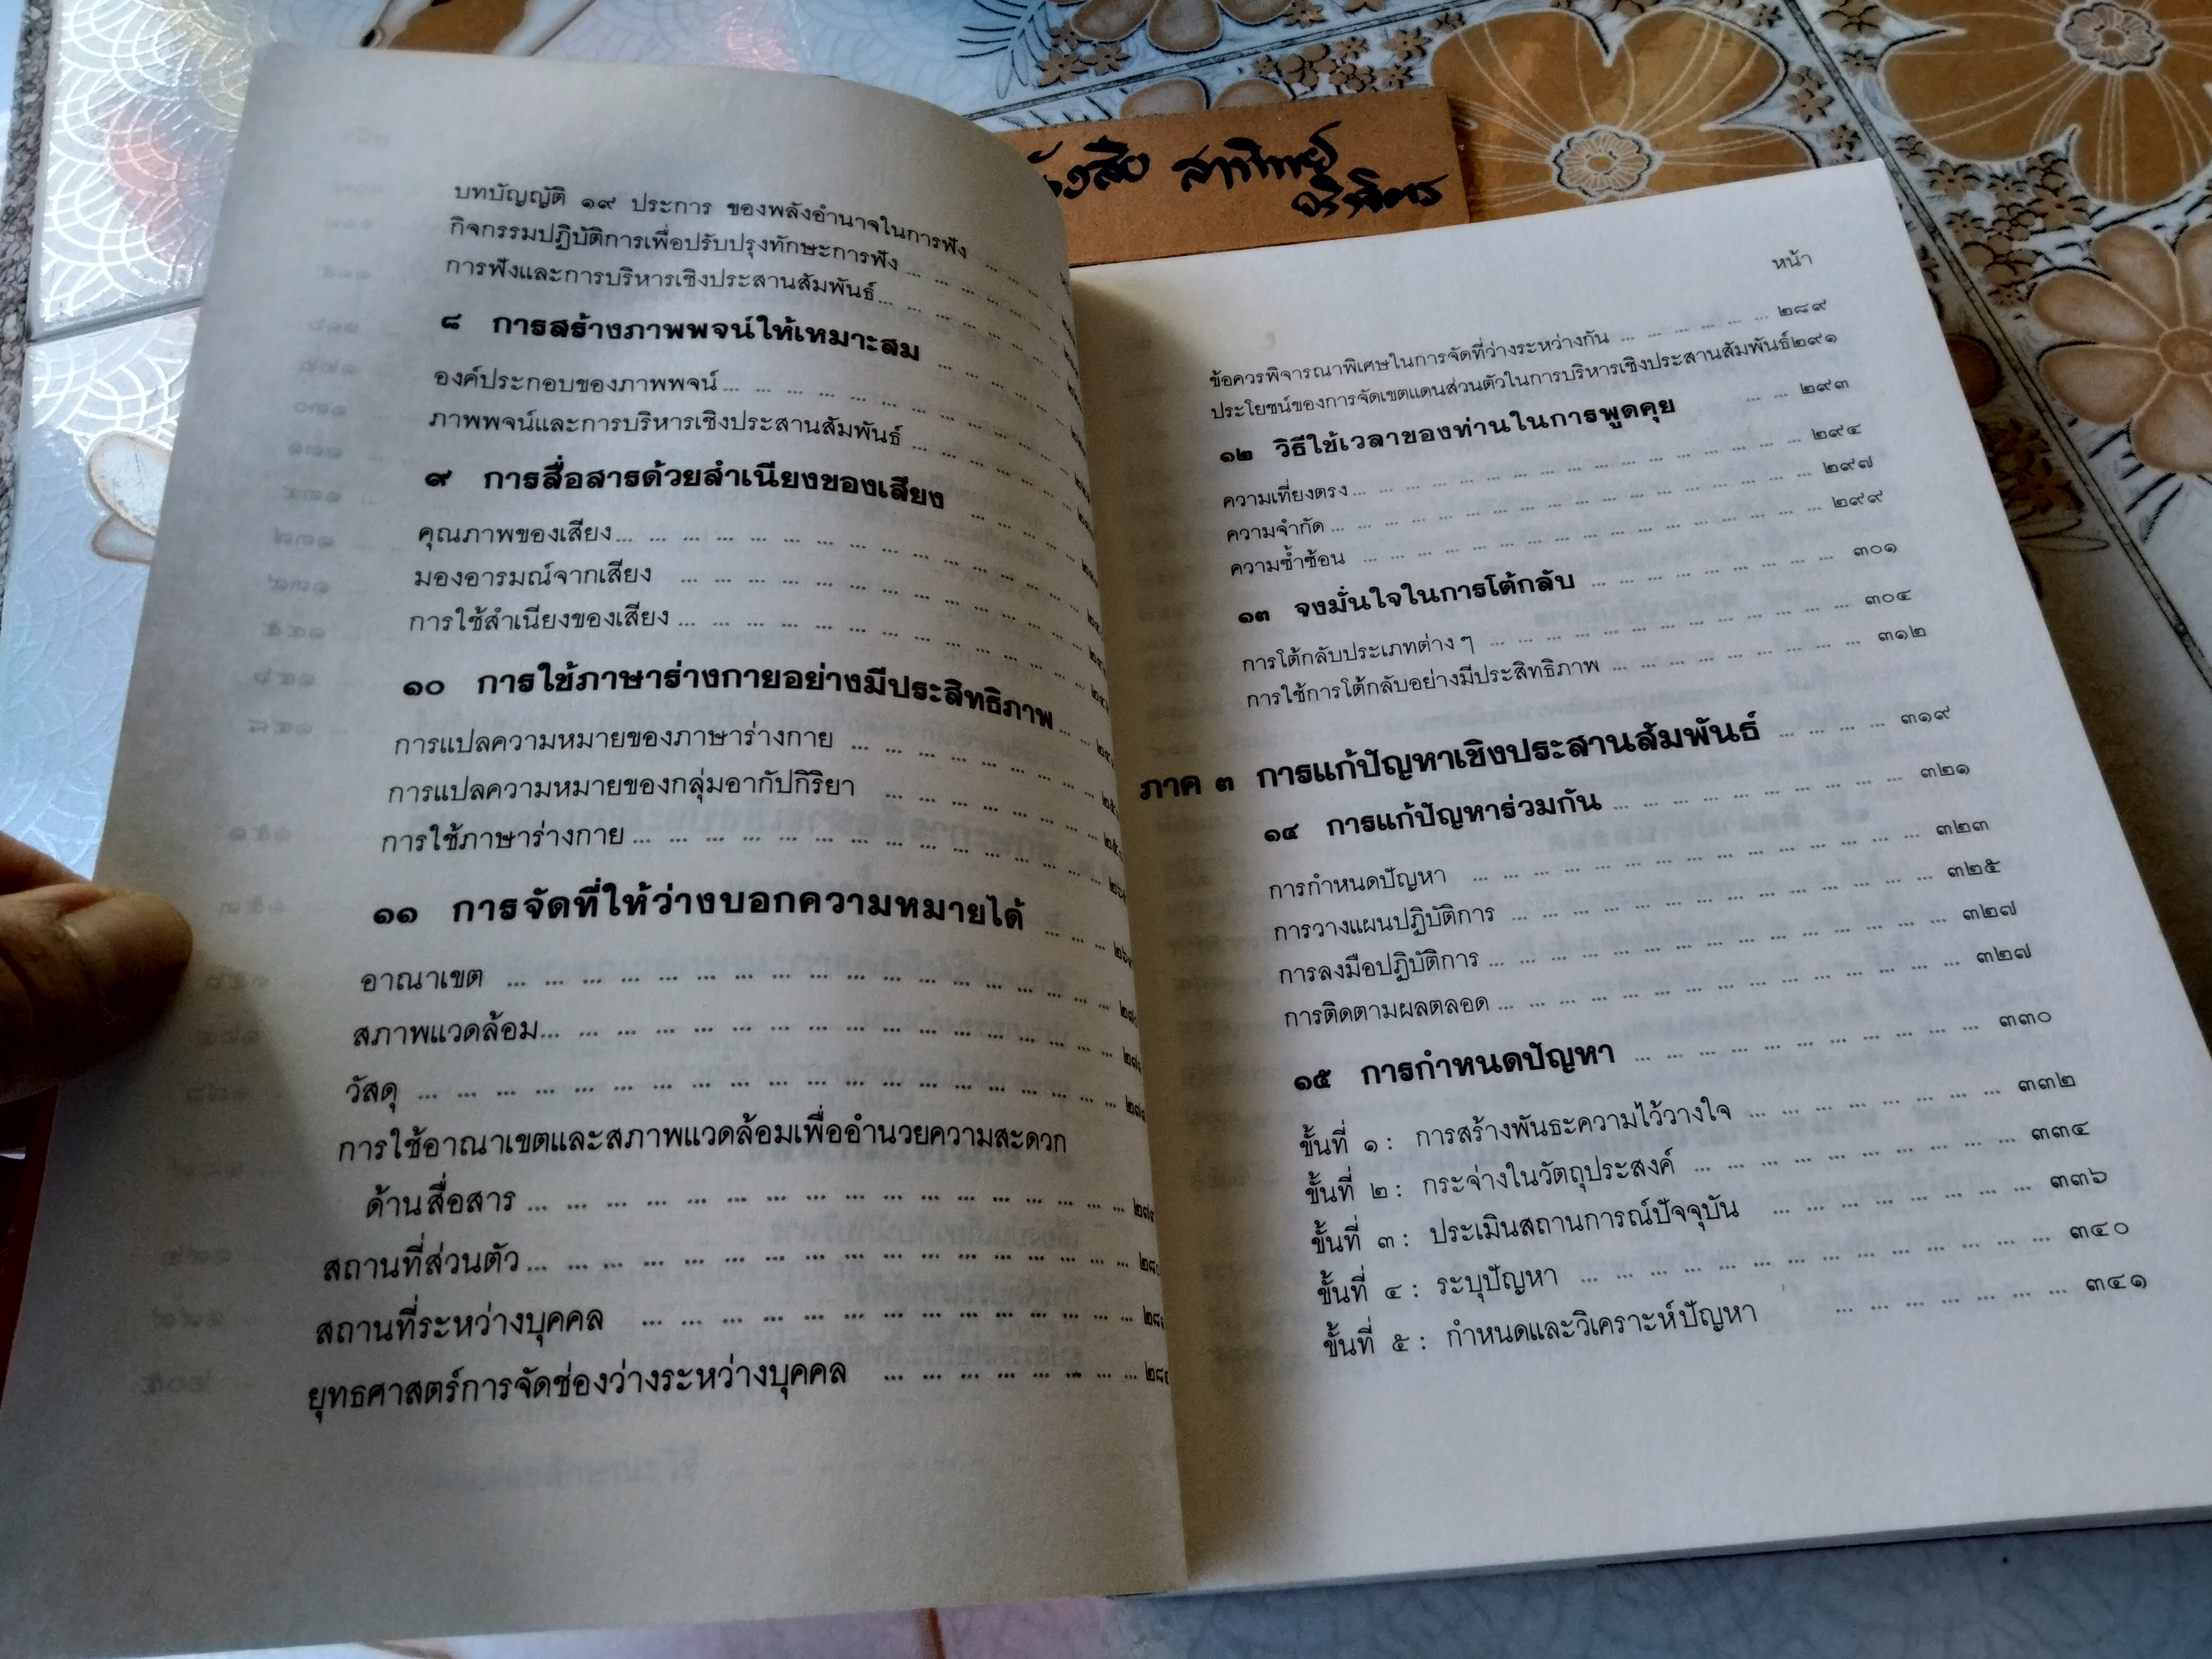 บทบัญญัติ ๑๙ ประการ ของพลังอำนาจในการฟัง ... ... ...
กิจกรรมปฏิบัติการเพื่อปรับปรุงทักษะการฟัง ... ... ... ... ...
การฟังและการบริหารเชิงประสานสัมพันธ์ ... ... ... ... ... ...
๘ การสร้างภาพพจน์ให้เหมาะสม ... ... ... ... ...
องค์ประกอบของภาพพจน์ ... ... ... ... ... ... ... ... ... ...
ภาพพจน์และการบริหารเชิงประสานสัมพันธ์ ... ... ... ... ...
๙ การสื่อสารด้วยสำเนียงของเสียง ... ... ... ...
คุณภาพของเสียง ... ... ... ... ... ... ... ... ... ... ... ... ...
มองอารมณ์จากเสียง ... ... ... ... ... ... ... ... ... ... ... ...
การใช้สำเนียงของเสียง ... ... ... ... ... ... ... ... ... ... ... ...
๑๐ การใช้ภาษาร่างกายอย่างมีประสิทธิภาพ ... ...
การแปลความหมายของภาษาร่างกาย ... ... ... ... ... ... ...
การแปลความหมายของกลุ่มอากัปกิริยา ... ... ... ... ... ...
การใช้ภาษาร่างกาย ... ... ... ... ... ... ... ... ... ... ... ... ...
๑๑ การจัดที่ให้ว่างบอกความหมายได้ ... ... ...
อาณาเขต ... ... ... ... ... ... ... ... ... ... ... ... ... ... ... ...
สภาพแวดล้อม ... ... ... ... ... ... ... ... ... ... ... ... ... ... ...
วัสดุ ... ... ... ... ... ... ... ... ... ... ... ... ... ... ... ... ... ...
การใช้อาณาเขตและสภาพแวดล้อมเพื่ออำนวยความสะดวก
ด้านสื่อสาร ... ... ... ... ... ... ... ... ... ... ... ... ... ... ...
สถานที่ส่วนตัว ... ... ... ... ... ... ... ... ... ... ... ... ... ... ...
สถานที่ระหว่างบุคคล ... ... ... ... ... ... ... ... ... ... ... ... ...
ยุทธศาสตร์การจัดช่องว่างระหว่างบุคคล ... ... ... ... ... ... ...
สาทิพย์
หน้า
ข้อควรพิจารณาพิเศษในการจัดที่ว่างระหว่างกัน ... ... ... ... ... ๒๘๙
ประโยชน์ของการจัดเขตแดนส่วนตัวในการบริหารเชิงประสานสัมพันธ์๒๙๑
๑๒ วิธีใช้เวลาของท่านในการพูดคุย ... ... ๒๙๓
ความเที่ยงตรง ... ... ... ... ... ... ... ... ... ... ... ... ... ... ๒๙๔
ความจำกัด ... ... ... ... ... ... ... ... ... ... ... ... ... ... ... ๒๙๗
ความซ้ำซ้อน ... ... ... ... ... ... ... ... ... ... ... ... ... ... ๒๙๙
๑๓ จงมั่นใจในการโต้กลับ ... ... ... ... ... ... ... ๓๐๑
การโต้กลับประเภทต่าง ๆ ... ... ... ... ... ... ... ... ... ... ๓๐๔
การใช้การโต้กลับอย่างมีประสิทธิภาพ ... ... ... ... ... ... ... ๓๑๒
ภาค ๓ การแก้ปัญหาเชิงประสานสัมพันธ์ ... ... ... ... ๓๑๙
๑๔ การแก้ปัญหาร่วมกัน ... ... ... ... ... ... ... ... ๓๒๑
การกำหนดปัญหา ... ... ... ... ... ... ... ... ... ... ... ... ๓๒๓
การวางแผนปฏิบัติการ ... ... ... ... ... ... ... ... ... ... ... ๓๒๕
การลงมือปฏิบัติการ ... ... ... ... ... ... ... ... ... ... ... ... ๓๒๗
การติดตามผลตลอด ... ... ... ... ... ... ... ... ... ... ... ... ๓๒๗
๑๕ การกำหนดปัญหา ... ... ... ... ... ... ... ... ... ๓๓๐
ขั้นที่ ๑ : การสร้างพันธะความไว้วางใจ ... ... ... ... ... ... ... ๓๓๒
ขั้นที่ ๒ : กระจ่างในวัตถุประสงค์ ... ... ... ... ... ... ... ... ๓๓๔
ขั้นที่ ๓ : ประเมินสถานการณ์ปัจจุบัน ... ... ... ... ... ... ... ๓๓๖
ขั้นที่ ๔ : ระบุปัญหา ... ... ... ... ... ... ... ... ... ... ... ... ๓๔๐
ขั้นที่ ๕ : กำหนดและวิเคราะห์ปัญหา ... ... ... ... ... ... ๓๔๑